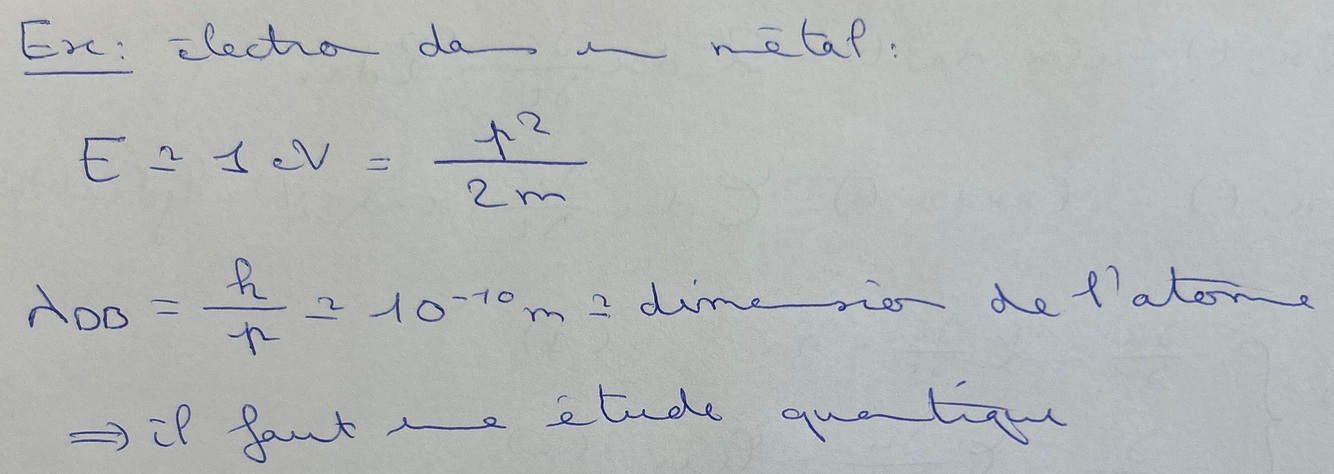 Ex: électron dans un métal:
E ≃ 1 eV = p² / 2m
λ_DB = h / p ≃ 10⁻¹⁰ m ≃ dimension de l'atome
⇒ il faut une étude quantique